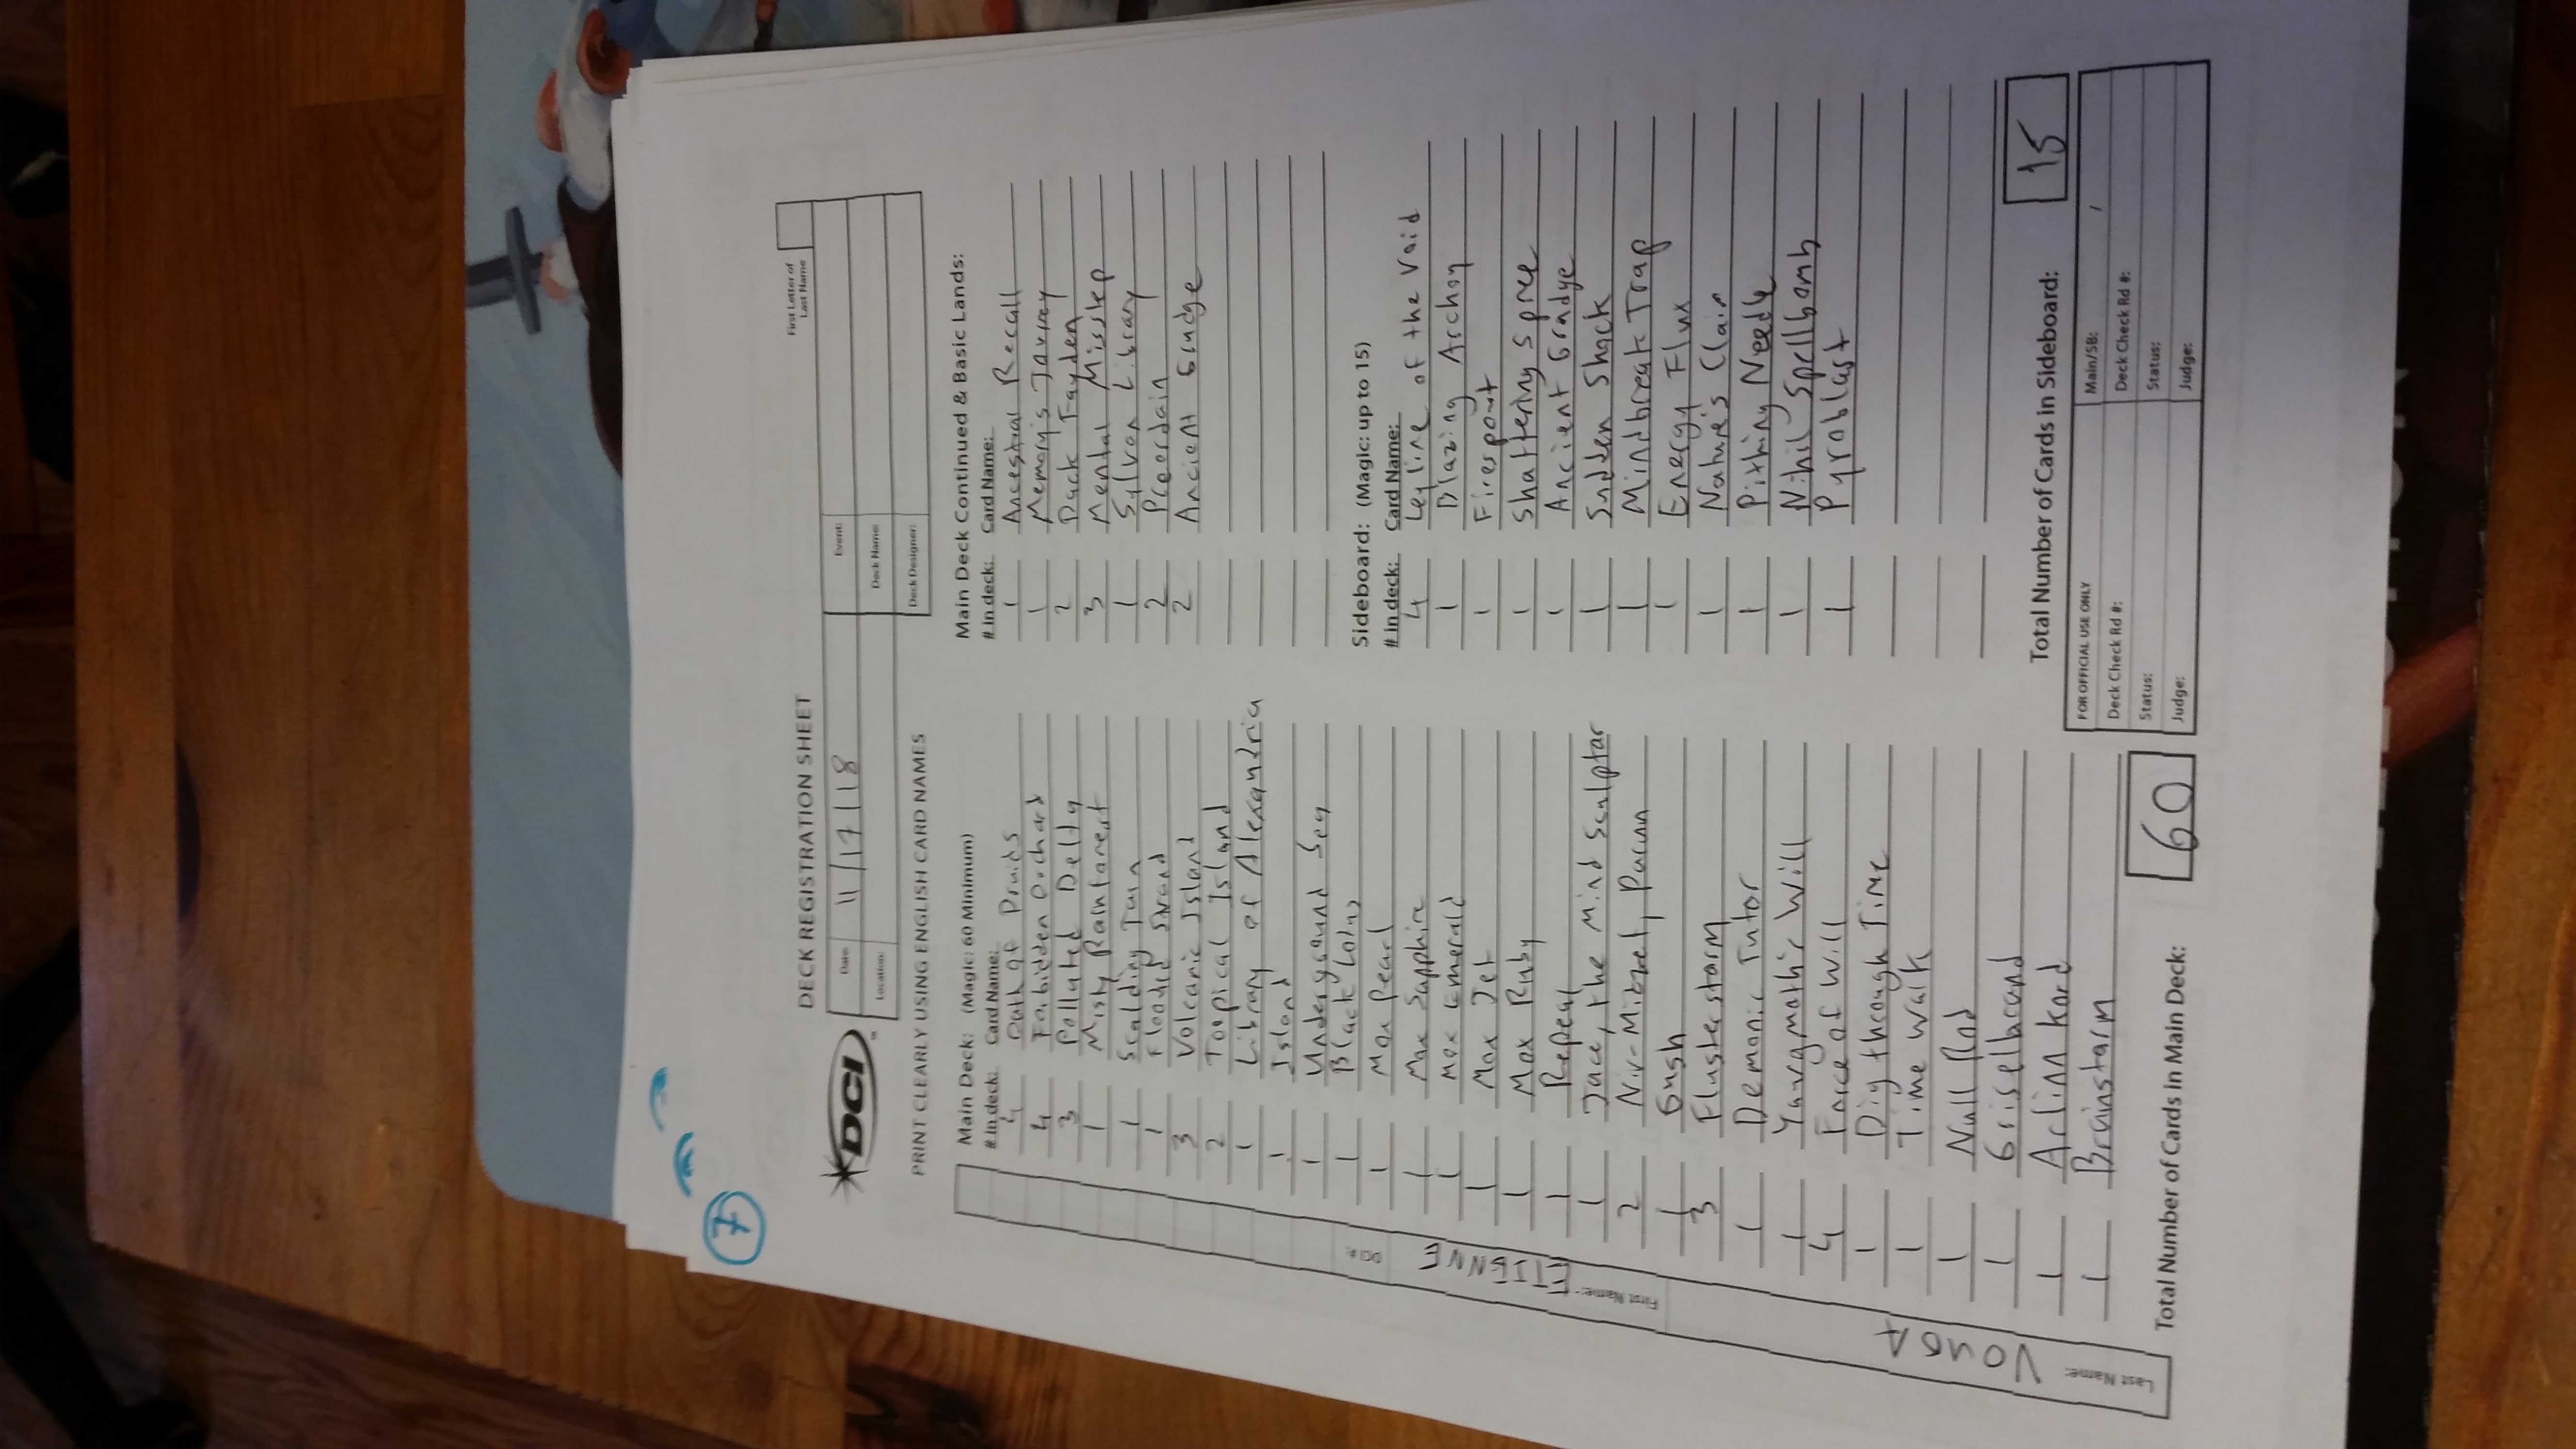 7
DECK REGISTRATION SHEET
First Letter of
Last Name
DCI
Date: 11/17/18
Event:
Location:
Deck Name:
Deck Designer:
PRINT CLEARLY USING ENGLISH CARD NAMES
DCI #:
First Name: ETIENNE
Last Name: VONGA
Main Deck: (Magic: 60 Minimum)
# in deck: Card Name:
4 Oath of Druids
4 Forbidden Orchard
3 Polluted Delta
1 Misty Rainforest
1 Scalding Tarn
1 Flooded Strand
3 Volcanic Island
2 Tropical Island
1 Library of Alexandria
1 Island
1 Underground Sea
1 Black Lotus
1 Mox Pearl
1 Mox Sapphire
1 Mox Emerald
1 Mox Jet
1 Mox Ruby
1 Repeal
1 Jace, the Mind Sculptor
2 Niv-Mizzet, Parun
1 Gush
3 Flusterstorm
1 Demonic Tutor
1 Yawgmoth's Will
4 Force of Will
1 Dig through Time
1 Time Walk
1 Null Rod
1 Griselbrand
1 Arlinn Kord
1 Brainstorm
Total Number of Cards in Main Deck: 60
Main Deck Continued & Basic Lands:
# in deck: Card Name:
1 Ancestral Recall
1 Memory's Journey
2 Dack Fayden
3 Mental Misstep
1 Sylvan Library
2 Preordain
2 Ancient Grudge
Sideboard: (Magic: up to 15)
# in deck: Card Name:
4 Leyline of the Void
1 Blazing Archon
1 Firespout
1 Shattering Spree
1 Ancient Grudge
1 Sudden Shock
1 Mindbreak Trap
1 Energy Flux
1 Nature's Claim
1 Pithing Needle
1 Nihil Spellbomb
1 Pyroblast
Total Number of Cards in Sideboard: 15
FOR OFFICIAL USE ONLY
Main/SB: /
Deck Check Rd #:
Deck Check Rd #:
Status:
Status:
Judge:
Judge: